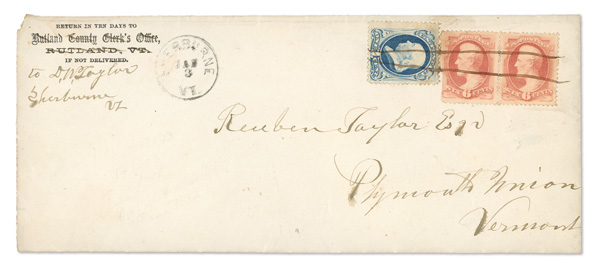 RETURN IN TEN DAYS TO
Rutland County Clerk's Office,
RUTLAND, VT.
IF NOT DELIVERED.
to D. W. Taylor
Sherburne
Vt
SHERBURNE
3
VT.
Reuben Taylor Esqr
Plymouth Union
Vermont